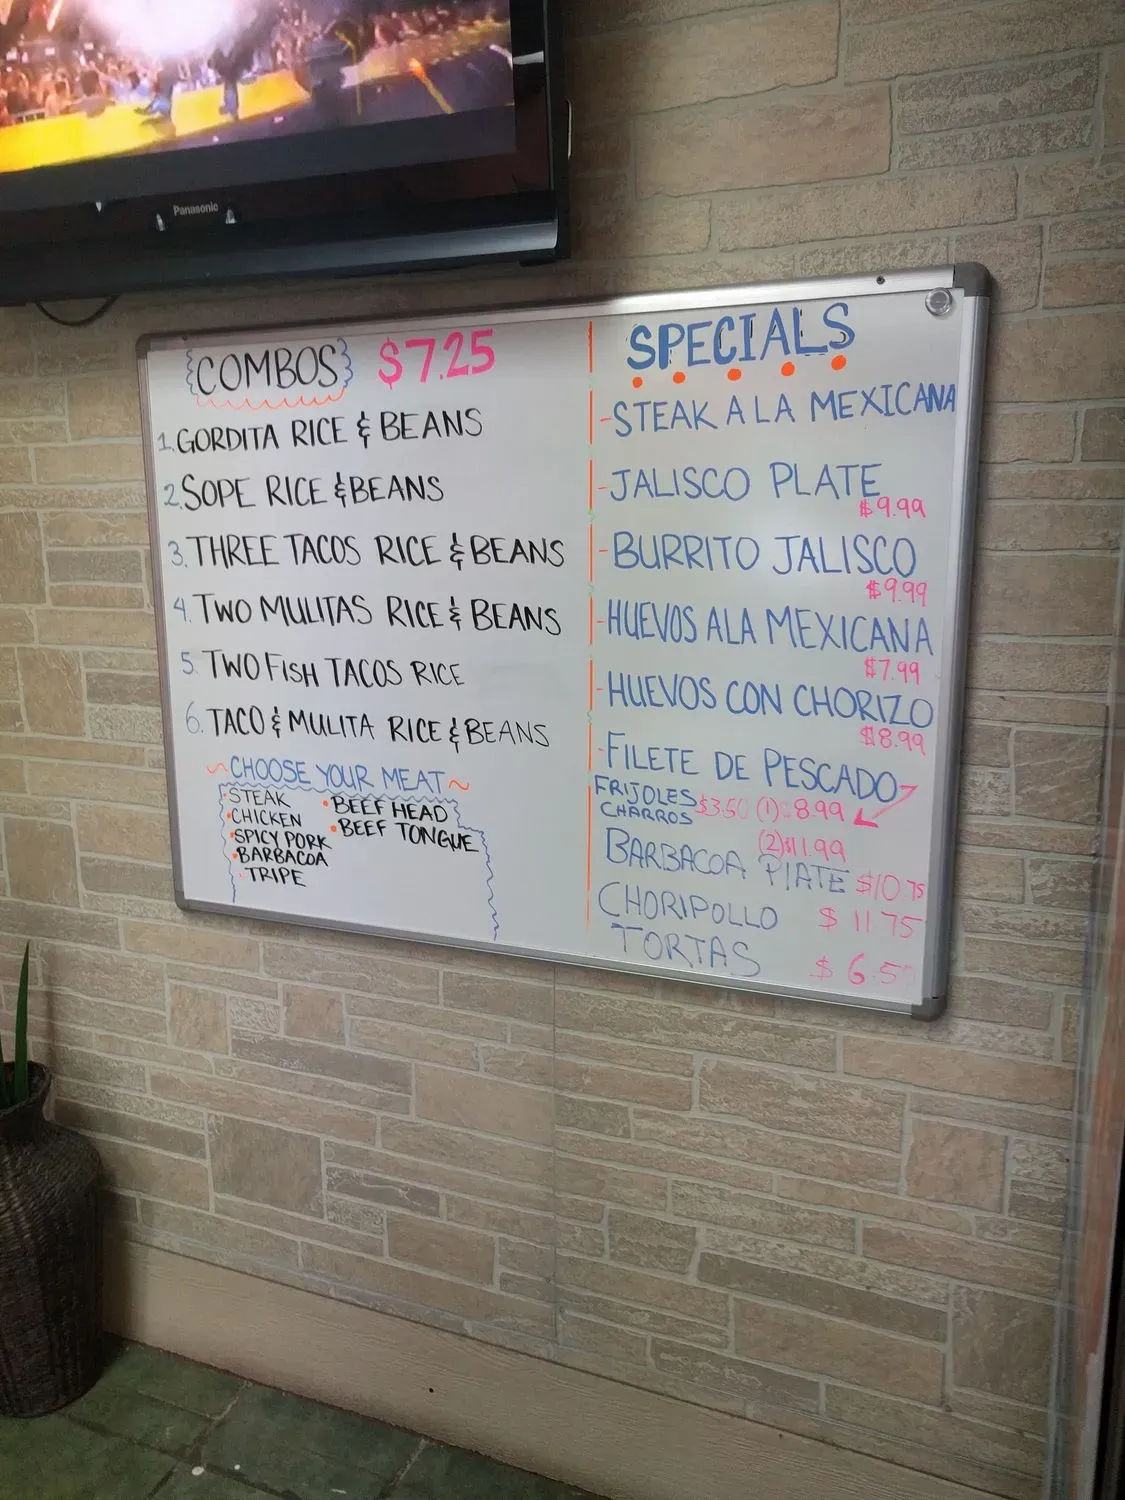 Panasonic
COMBOS $7.25
1. GORDITA RICE & BEANS
2. SOPE RICE & BEANS
3. THREE TACOS RICE & BEANS
4. TWO MULITAS RICE & BEANS
5. TWO FISH TACOS RICE
6. TACO & MULITA RICE & BEANS
~CHOOSE YOUR MEAT~
•STEAK
•CHICKEN
•SPICY PORK
•BARBACOA
•TRIPE
•BEEF HEAD
•BEEF TONGUE
SPECIALS
-STEAK A LA MEXICANA
-JALISCO PLATE
$9.99
-BURRITO JALISCO
$9.99
-HUEVOS ALA MEXICANA
$7.99
-HUEVOS CON CHORIZO
$8.99
-FILETE DE PESCADO
FRIJOLES
CHARROS $3.50 (1) 8.99
(2) $11.99
BARBACOA PLATE $10.75
CHORIPOLLO $11.75
TORTAS $6.5